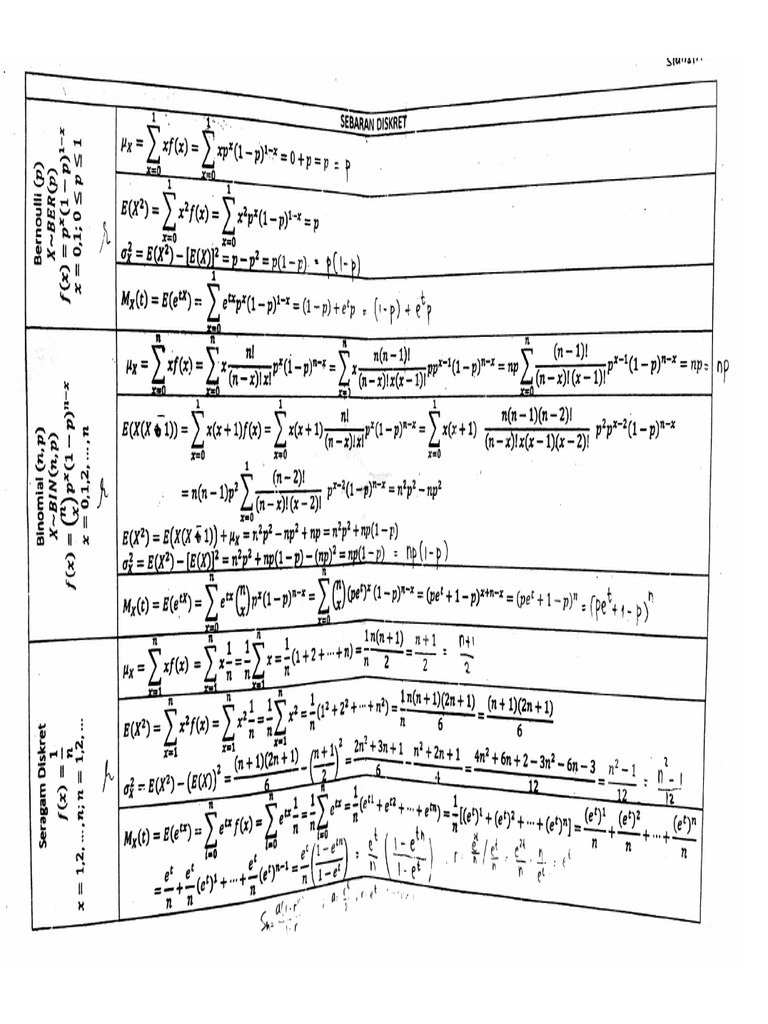 SEBARAN DISKRET
Bernoulli (p)
X~BER(p)
f(x) = p^x(1 − p)^{1−x}
x = 0,1; 0 ≤ p ≤ 1
μ_X = ∑_{x=0}^{1} xf(x) = ∑_{x=0}^{1} xp^x(1 − p)^{1−x} = 0 + p = p = p
E(X²) = ∑_{x=0}^{1} x²f(x) = ∑_{x=0}^{1} x²p^x(1 − p)^{1−x} = p
σ_X² = E(X²) − [E(X)]² = p − p² = p(1 − p) = p(1-p)
M_X(t) = E(e^{tX}) = ∑_{x=0}^{1} e^{tx}p^x(1 − p)^{1−x} = (1 − p) + e^t p = (1-p) + e^t p
Binomial (n, p)
X~BIN(n, p)
f(x) = (n x) p^x(1 − p)^{n−x}
x = 0,1,2, …, n
μ_X = ∑_{x=0}^{n} xf(x) = ∑_{x=0}^{n} x n!/((n − x)! x!) p^x(1 − p)^{n−x} = ∑_{x=1}^{n} x n(n − 1)!/((n − x)! x(x − 1)!) pp^{x−1}(1 − p)^{n−x} = np ∑_{x=0}^{n} (n − 1)!/((n − x)! (x − 1)!) p^{x−1}(1 − p)^{n−x} = np = np
E(X(X − 1)) = ∑_{x=0}^{1} x(x + 1)f(x) = ∑_{x=0}^{1} x(x + 1) n!/((n − x)! x!) p^x(1 − p)^{n−x} = ∑_{x=0}^{1} x(x + 1) n(n − 1)(n − 2)!/((n − x)! x(x − 1)(x − 2)!) p²p^{x−2}(1 − p)^{n−x}
= n(n − 1)p² ∑_{x=0}^{1} (n − 2)!/((n − x)! (x − 2)!) p^{x−2}(1 − p)^{n−x} = n²p² − np²
E(X²) = E(X(X − 1)) + μ_X = n²p² − np² + np = n²p² + np(1 − p)
σ_X² = E(X²) − [E(X)]² = n²p² + np(1 − p) − (np)² = np(1 − p) = np(1-p)
M_X(t) = E(e^{tX}) = ∑_{x=0}^{n} e^{tx} (n x) p^x(1 − p)^{n−x} = ∑_{x=0}^{n} (n x) (pe^t)^x(1 − p)^{n−x} = (pe^t + 1 − p)^{x+n−x} = (pe^t + 1 − p)^n = (pe^t + 1 - p)^n
Seragam Diskret
f(x) = 1/n
x = 1,2, …, n; n = 1,2, …
μ_X = ∑_{x=1}^{n} xf(x) = ∑_{x=1}^{n} x 1/n = 1/n ∑_{x=1}^{n} x = 1/n (1 + 2 + ⋯ + n) = 1/n n(n + 1)/2 = (n + 1)/2 = (n+1)/2
E(X²) = ∑_{x=1}^{n} x²f(x) = ∑_{x=1}^{n} x² 1/n = 1/n ∑_{x=1}^{n} x² = 1/n (1² + 2² + ⋯ + n²) = 1/n n(n + 1)(2n + 1)/6 = (n + 1)(2n + 1)/6
σ_X² = E(X²) − (E(X))² = (n + 1)(2n + 1)/6 − ((n + 1)/2)² = (2n² + 3n + 1)/6 − (n² + 2n + 1)/4 = (4n² + 6n + 2 − 3n² − 6n − 3)/12 = (n² − 1)/12 = (n² - 1)/12
M_X(t) = E(e^{tx}) = ∑_{i=0}^{n} e^{tx} f(x) = ∑_{i=0}^{n} e^{tx} 1/n = 1/n ∑_{i=0}^{n} e^{tx} = 1/n (e^{t1} + e^{t2} + ⋯ + e^{tn}) = 1/n [(e^t)^1 + (e^t)^2 + ⋯ + (e^t)^n] = (e^t)^1/n + (e^t)^2/n + ⋯ + (e^t)^n/n
= e^t/n + e^t/n (e^t)^1 + ⋯ + e^t/n (e^t)^{n−1} = e^t/n ((1 − e^{tn})/(1 − e^t)) = e^t/n ((1 - e^{tn})/(1 - e^t))